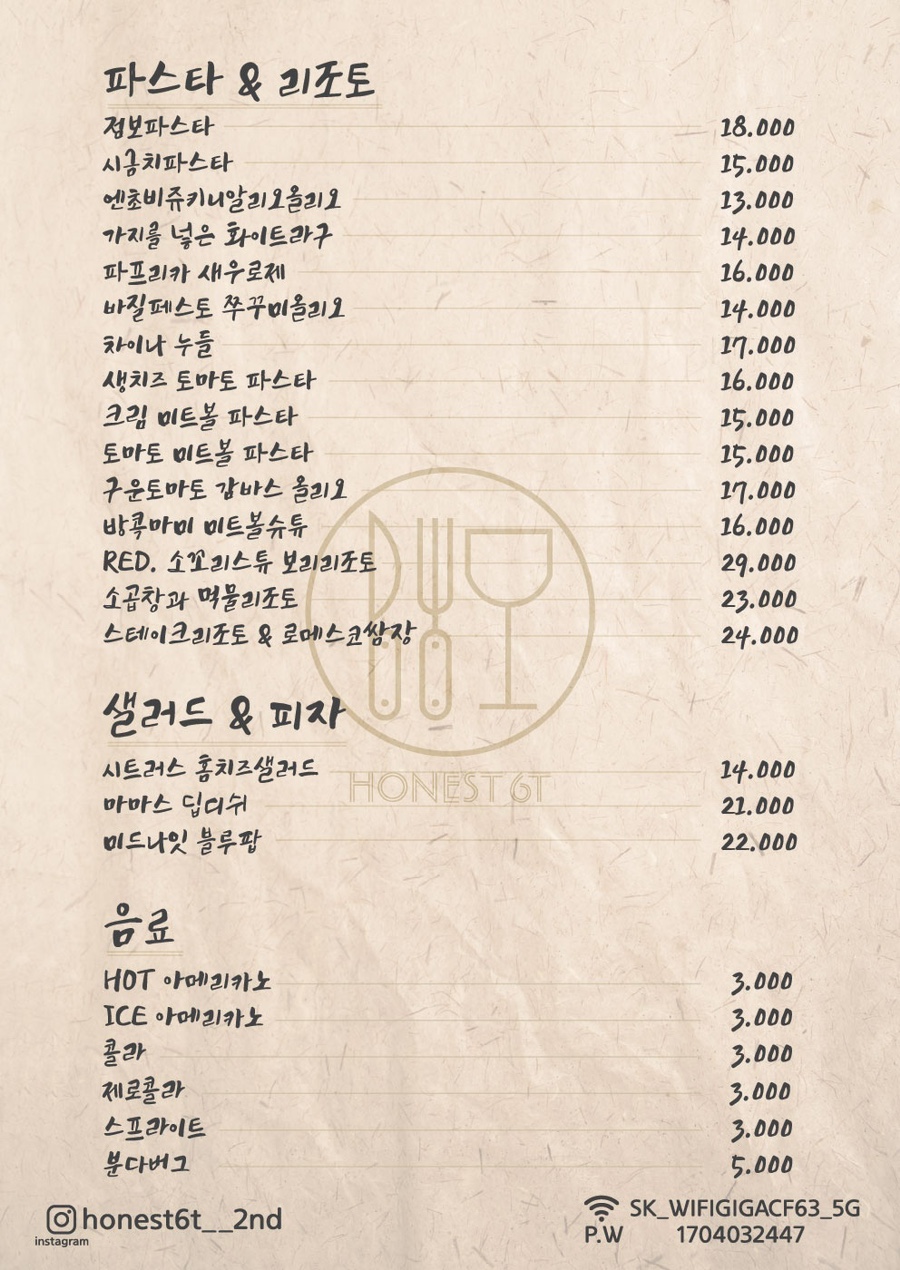 파스타 & 리조토
점보파스타 18.000
시금치파스타 15.000
엔초비쥬키니알리오올리오 13.000
가지를 넣은 화이트라구 14.000
파프리카 새우로제 16.000
바질페스토 쭈꾸미올리오 14.000
차이나 누들 17.000
생치즈 토마토 파스타 16.000
크림 미트볼 파스타 15.000
토마토 미트볼 파스타 15.000
구운토마토 감바스 올리오 17.000
방콕마미 미트볼슈튜 16.000
RED. 소꼬리스튜 보리리조토 29.000
소곱창과 먹물리조토 23.000
스테이크리조토 & 로메스코쌈장 24.000
샐러드 & 피자
시트러스 홈치즈샐러드 14.000
HONEST 6T
마마스 딥디쉬 21.000
미드나잇 블루팝 22.000
음료
HOT 아메리카노 3.000
ICE 아메리카노 3.000
콜라 3.000
제로콜라 3.000
스프라이트 3.000
분다버그 5.000
honest6t__2nd
instagram
SK_WIFIGIGACF63_5G
P.W 1704032447